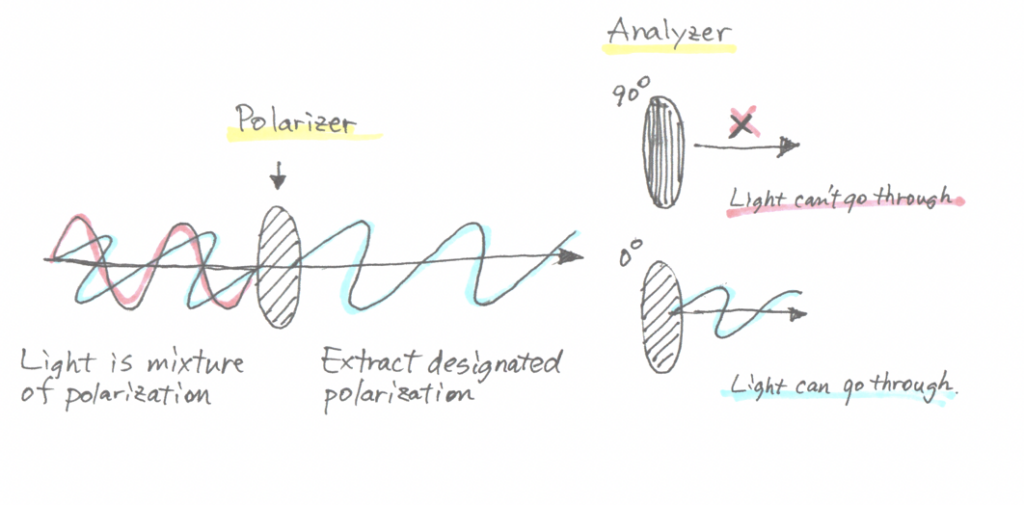 Analyzer
90°
Polarizer
Light can't go through.
0°
Light is mixture
of polarization
Extract designated
polarization
Light can go through.